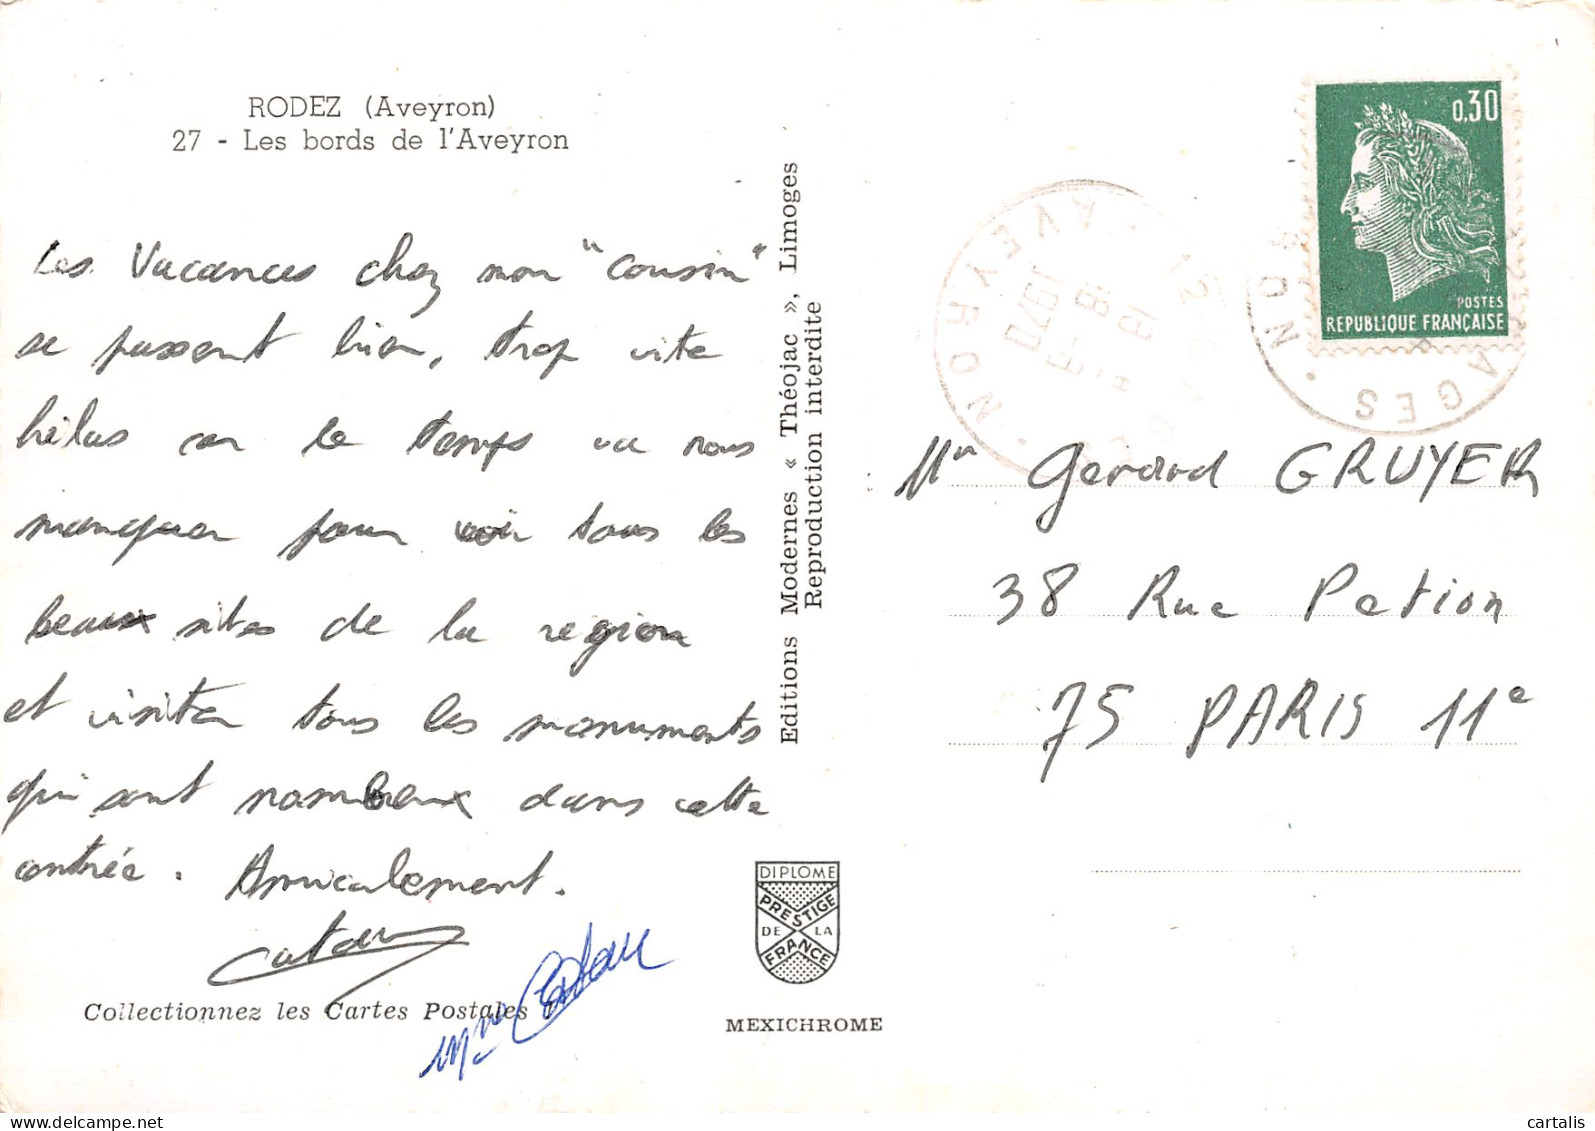 RODEZ (Aveyron)
27 - Les bords de l'Aveyron
Les Vacances chez mon "cousin"
se passent bien, trop vite
hélas car le temps va nous
manquer pour voir tous les
beaux sites de la region
et visiter tous les monuments
qui sont nombreux dans cette
contrée. Amicalement.
Collectionnez les Cartes Postales
Mme
Editions Modernes « Théojac », Limoges
Reproduction interdite
DIPLOME
PRESTIGE
DE LA
FRANCE
MEXICHROME
0,30
POSTES
REPUBLIQUE FRANÇAISE
AVEYRON
18
1970
AGES
Mr Gerard GRUYER
38 Rue Petion
75 PARIS 11e
cartalis